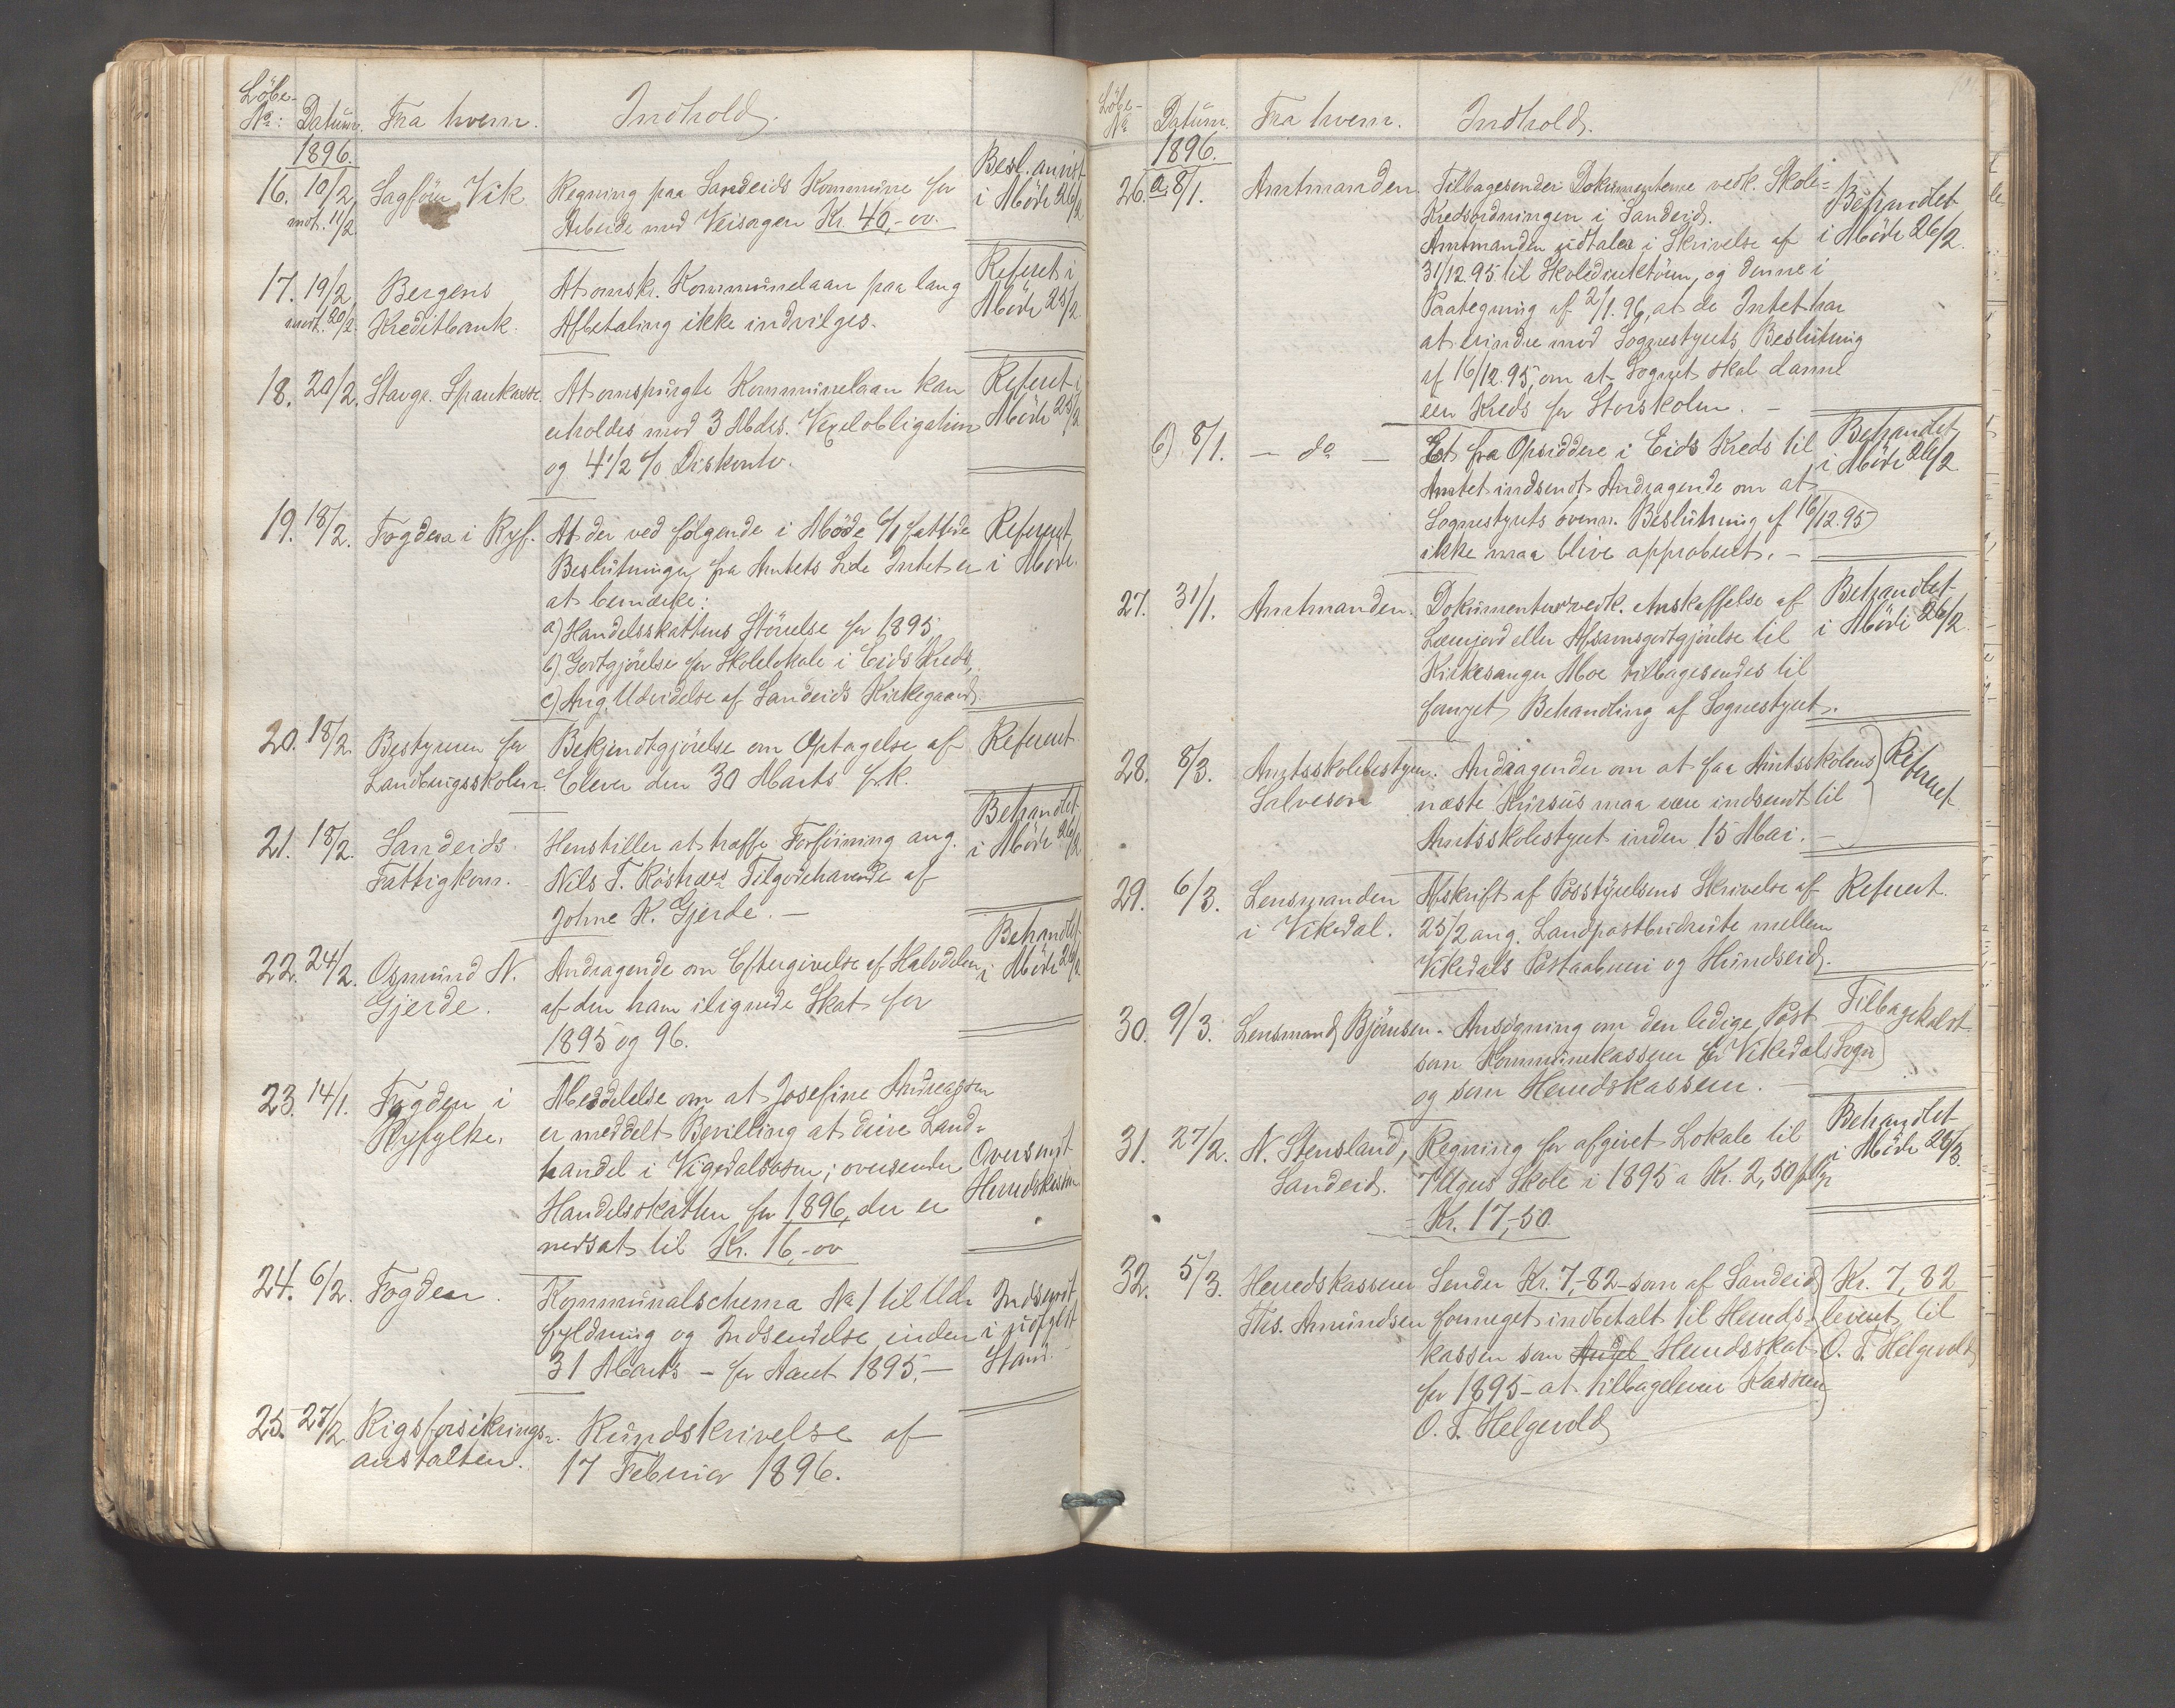 Löbe-
No: Datum. Fra hvem. Indhold.
1896.
16. 10/2, Sagförer Vik Regning paa Sandeids Kommune for Besl. anvist
mot. 11/2. Arbeide med Veisagen Kr. 40,-oo. i Möde 26/2
17. 19/2, Bergens At omskr. Kommunelaan paa lang Referet i
mot. 20/2. Kreditbank. Afbetaling ikke indvilges. Möde 25/2
18. 20/2. Stavgr. Sparekasse. At omspurgte Kommunelaan kan Referet i
erholdes mod 3 Mdrs. Vexelobligation Möde 25/2
og 4 1/2 % Diskonto.
19. 18/2. Fogden i Ryf. At der ved følgende i Möde 6/1 fattede Refereret
Beslutninger fra Amtets Side Intet er i Möde.
at bemærke:
a) Handelsskattens Störrelse for 1895,
b) Godtgjörelse for Skolelokale i Eids Kreds,
c) Ang. Udvidelse af Sandeids Kirkegaard.
20. 18/2. Bestyreren for Bekjendtgjörelse om Optagelse af Refereret
Landbrugsskolen. Elever den 30 Marts f.k.
21. 18/2. Sandeids Henstiller at træffe Forföining ang. Behandlet
Fattigkom. Nils T. Röstræs Tilgodehavende af i Möde 26/2
Johne K. Gjerde. —
22. 24/2. Osmund N. Andragende om Eftergivelse af Halvdelen Behandlet
Gjerde. af den ham ilignede Skat for i Möde 26/2
1895 og 96.
23. 14/1. Fogden i Meddelelse om at Josefine Andreassen
Ryfylke. er meddelt Bevilling at drive Land-
handel i Vigedalsosen; oversender Oversendt
Handelsskatten for 1896, der er Herredskassen
nedsat til Kr. 16,-oo
24. 6/2. Fogden. Kommunalschema No 1 til Ud- Indsendt
fyldning og Indsendelse inden i udfyldt
31 Marts – for Aaret 1895. — Stand.
25. 27/2. Rigsforsikrings- Rundskrivelse af
anstalten. 17 Februar 1896.
Löbe-
No Datum. Fra hvem. Indhold.
1896.
26. a. 8/1. Amtmanden. Tilbagesender Dokumenterne vedk. Skole- Behandlet
Kredsordningen i Sandeid. i Möde 26/2.
Amtmanden udtaler i Skrivelse af
31/12.95 til Skoledirektören, og denne i
Paategning af 2/1.96, at de Intet har
at erindre mod Sognestyrets Beslutning
af 16/12.95, om at Sognet skal danne
een Kreds for Storskolen. —
b) 8/1. — do — Et fra Opsiddere i Eids Kreds til Behandlet
Amtet indsendt Andragende om at i Möde 26/2
Sognestyrets ovenn. Beslutning af 16/12.95
ikke maa blive approberet. —
27. 31/1. Amtmanden. Dokumenter vedk. Anskaffelse af Behandlet
Lærerjord eller Afsavnsgodtgjörelse til i Möde 26/2.
Kirkesanger Moe tilbagesendes til
fornyet Behandling af Sognestyret.
28. 8/3. Amtsskolebestyrer Andragender om at faa Amtsskolens Refereret
Salveson næste Kursus maa være indsendt til
Amtsskolestyret inden 15 Mai. —
29. 6/3. Lensmanden Afskrift af Poststyrelsens Skrivelse af Refereret.
i Vikedal. 25/2 ang. Landpostbudruite mellem
Vikedals Postaabneri og Hundseid.
30. 9/3. Lensmand Björnsen. Ansögning om den ledige Post Tilbagekaldt.
som Kommunekasserer for Vikedals Sogn
og som Herredskasserer. —
31. 27/2. N. Stensland, Regning for afgivet Lokale til Behandlet
Sandeid. 7 Ugers Skole i 1895 a Kr. 2,50 pr. Uge i Möde 26/3.
= Kr. 17,-50.
32. 5/3. Herredskasserer Sender Kr. 7,-82 som af Sandeid Kr. 7,82
Ths. Amundsen formeget indbetalt til Herreds- leveret til
kassen som Andel Herredsskat O. T. Helgevold
for 1895 – at tilbagelevere Kasserer
O. T. Helgevold